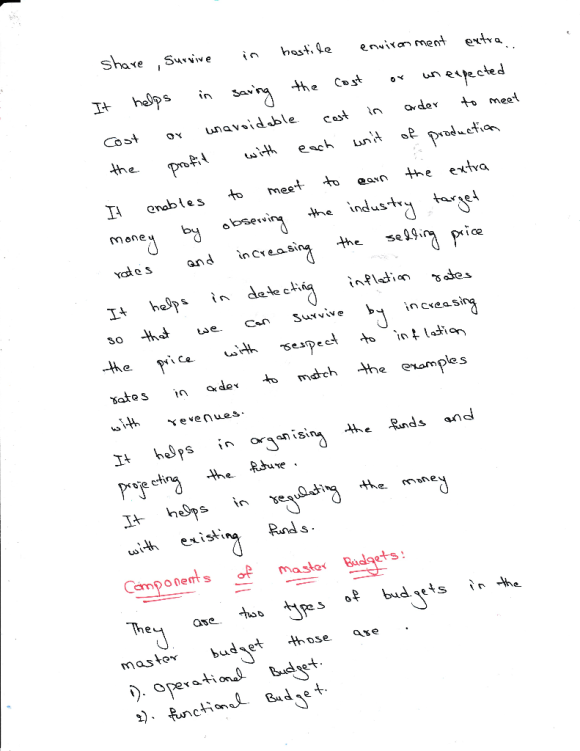 Share, Survive in hostile environment extra..
It helps in saving the cost or unexpected
cost or unavoidable cost in order to meet
the profit with each unit of production
It enables to meet to earn the extra
money by observing the industry target
rates and increasing the selling price
It helps in detecting inflation rates
so that we can survive by increasing
the price with respect to inflation
rates in order to match the examples
with revenues.
It helps in organising the funds and
projecting the future.
It helps in regulating the money
with existing funds.
Components of master Budgets:
They are two types of budgets in the
master budget those are .
1). Operational Budget.
2). functional Budget.